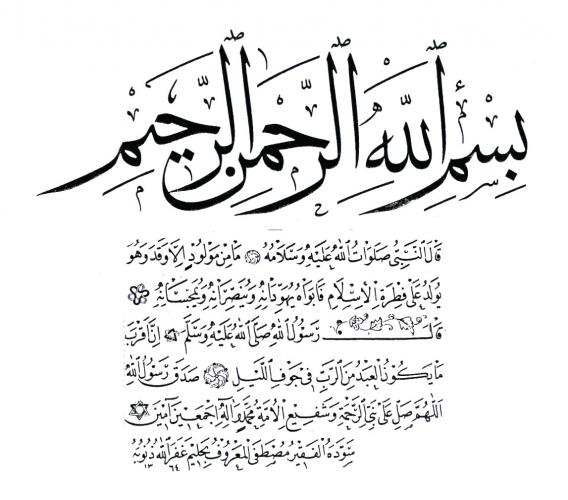 بسم الله الرحمن الرحيم
قال النبي صلوات الله عليه وسلامه ما من مولود الا وقد وهو
يولد على فطرة الاسلام فابواه يهودانه وينصرانه ويمجسانه
قال رسول الله صلى الله عليه وسلم ان اقرب
ما يكون العبد من الرب في جوف الليل صدق رسول الله
اللهم صل على نبي الرحمة وشفيع الامة محمد واله اجمعين آمين
سوده الفقير مصطفى المعروف بحليم غفر الله ذنوبه
١٣٦٤